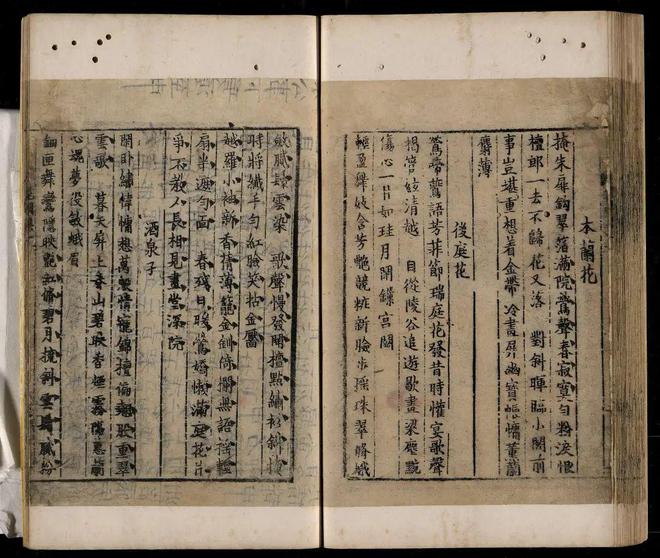 木蘭花
掩朱扉鈎翠箔滿院鶯聲春寂寞勻粉淚恨
檀郎一去不歸花又落 對斜暉臨小閣前
事豈堪重想着金帶冷畫屏幽寶帳慵薰蘭
麝薄
後庭花
鶯啼鷰語芳菲節瑞庭花發昔時懽宴歌聲
揭管絃清越 自從陵谷追遊歇畫梁塵黦
傷心一片如珪月閑鎖宮闕
輕盈舞妓含芳艷競粧新臉步摇珠翠脩蛾
斂膩鬟雲染 歌聲慢發開檀點繡衫斜掩
時將纖手勻紅臉笑拈金靨
越羅小袖新香蒨薄籠金釧倚欄無語摇輕
扇半遮勻面 春殘日暖鶯嬌懶滿庭花片
爭不教人長相見畫堂深院
酒泉子
閑卧繡幃慵想萬般情寵錦檀偏翹股重翠
雲欹 暮天屏上春山碧映香煙霧隔蕙蘭
心魂夢役斂蛾眉
鈿匣舞鸞隱映艷紅脩碧月梳斜雲鬢膩粉